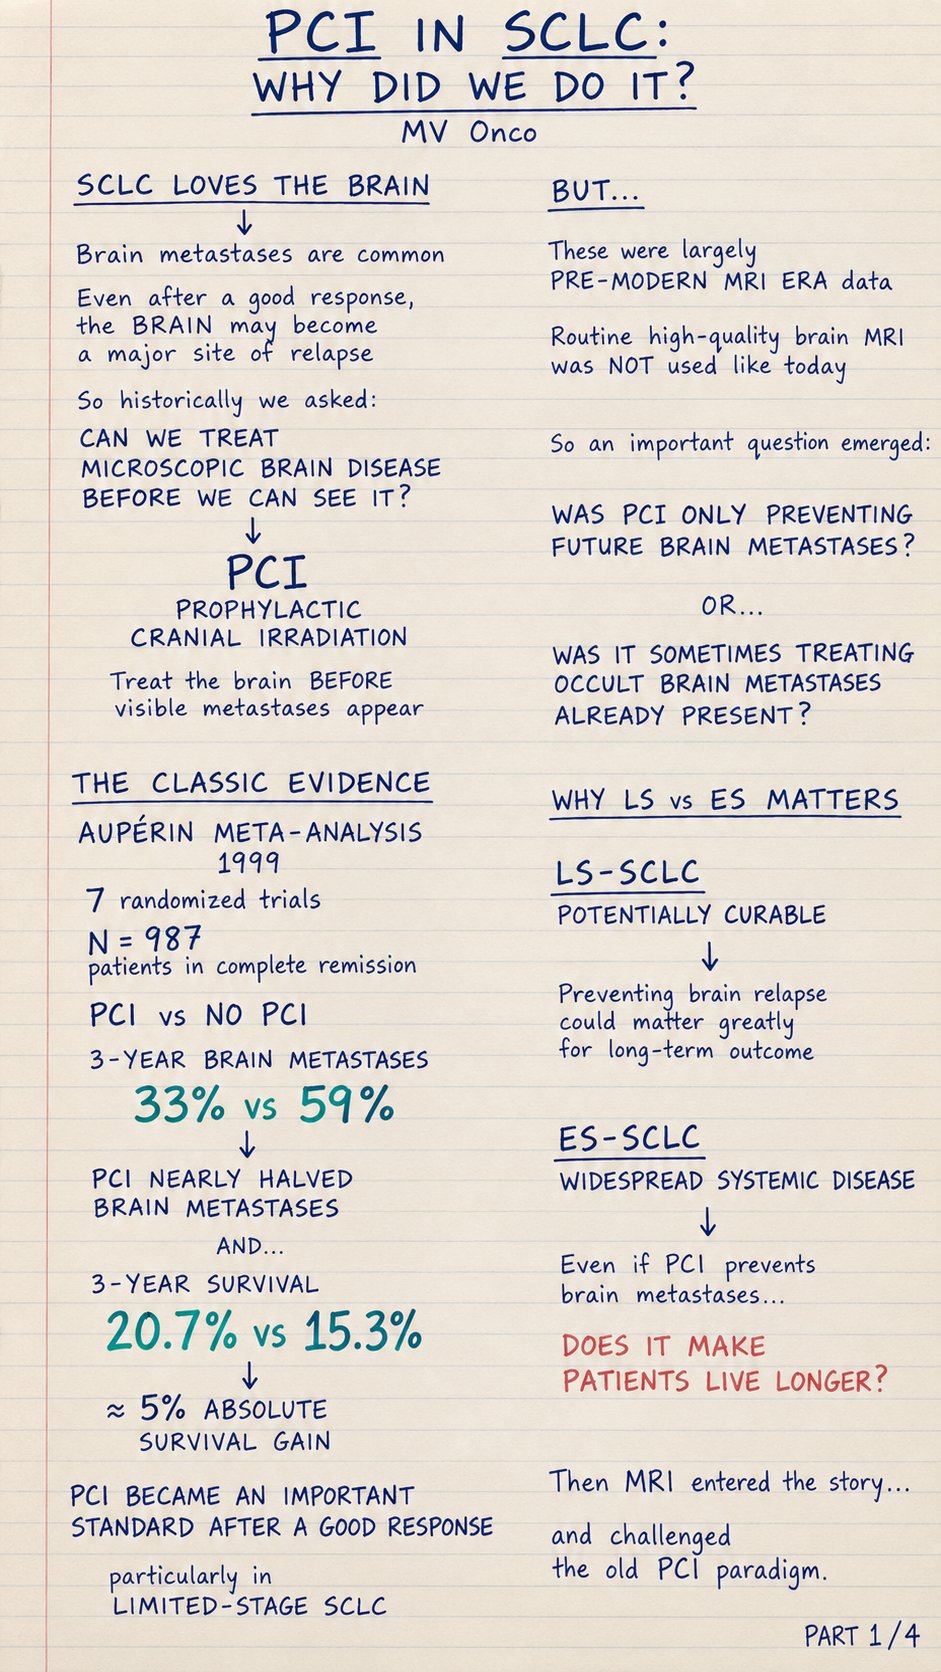 PCI IN SCLC:
WHY DID WE DO IT?
MV Onco
SCLC LOVES THE BRAIN
↓
Brain metastases are common
Even after a good response,
the BRAIN may become
a major site of relapse
So historically we asked:
CAN WE TREAT
MICROSCOPIC BRAIN DISEASE
BEFORE WE CAN SEE IT?
↓
PCI
PROPHYLACTIC
CRANIAL IRRADIATION
Treat the brain BEFORE
visible metastases appear
THE CLASSIC EVIDENCE
AUPÉRIN META-ANALYSIS
1999
7 randomized trials
N = 987
patients in complete remission
PCI vs NO PCI
3-YEAR BRAIN METASTASES
33% vs 59%
↓
PCI NEARLY HALVED
BRAIN METASTASES
AND...
3-YEAR SURVIVAL
20.7% vs 15.3%
↓
≈ 5% ABSOLUTE
SURVIVAL GAIN
PCI BECAME AN IMPORTANT
STANDARD AFTER A GOOD RESPONSE
particularly in
LIMITED-STAGE SCLC
BUT...
These were largely
PRE-MODERN MRI ERA data
Routine high-quality brain MRI
was NOT used like today
So an important question emerged:
WAS PCI ONLY PREVENTING
FUTURE BRAIN METASTASES?
OR...
WAS IT SOMETIMES TREATING
OCCULT BRAIN METASTASES
ALREADY PRESENT?
WHY LS vs ES MATTERS
LS-SCLC
POTENTIALLY CURABLE
↓
Preventing brain relapse
could matter greatly
for long-term outcome
ES-SCLC
WIDESPREAD SYSTEMIC DISEASE
↓
Even if PCI prevents
brain metastases...
DOES IT MAKE
PATIENTS LIVE LONGER?
Then MRI entered the story...
and challenged
the old PCI paradigm.
PART 1/4